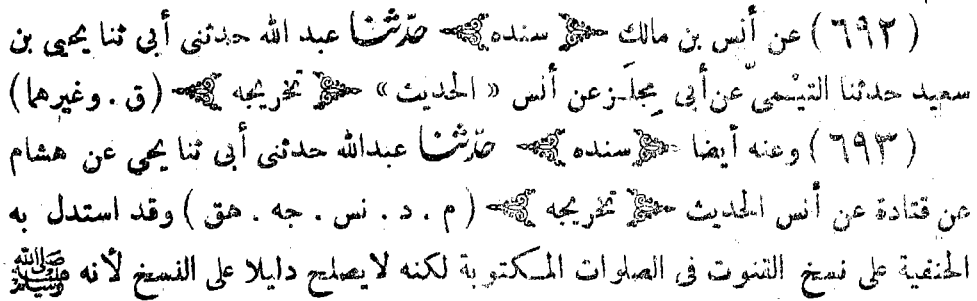 (٦٩٢) عن أنس بن مالك ﴿ سنده ﴾ حدّثنا عبد الله حدثنى أبى ثنا يحيى بن
سعيد حدثنا التيْمىّ عن أبى مِجلَز عن أنس « الحديث » ﴿ تخريجه ﴾ (ق . وغيرهما)
(٦٩٣) وعنه أيضا ﴿ سنده ﴾ حدّثنا عبدالله حدثنى أبى ثنا يحي عن هشام
عن قتادة عن أنس الحديث ﴿ تخريجه ﴾ (م . د . نس . جه . هق) وقد استدل به
الحنفية على نسخ القنوت فى الصلوات المكتوبة لكنه لا يصلح دليلا على النسخ لأنه ﷺ